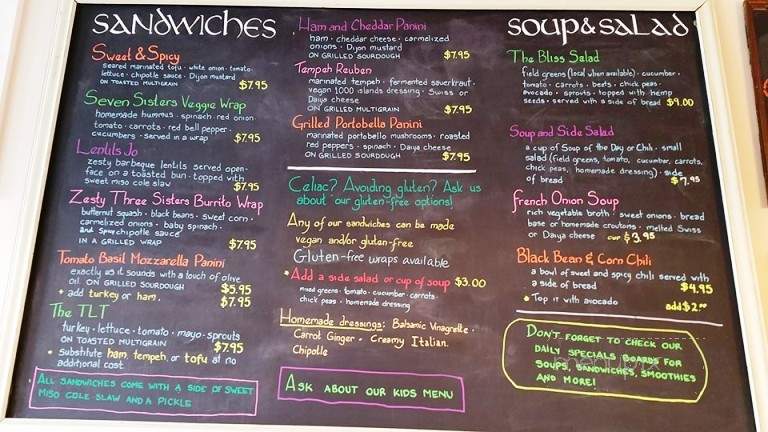 SANDWICHES
Sweet & Spicy
seared marinated tofu · white onion · tomato ·
lettuce · chipotle sauce · Dijon mustard
ON TOASTED MULTIGRAIN
$7.95
Seven Sisters Veggie Wrap
homemade hummus · spinach · red onion ·
tomato · carrots · red bell pepper ·
cucumbers · served in a wrap
$7.95
Lentils Jo
zesty barbeque lentils served open-
face on a toasted bun · topped with
sweet miso cole slaw
$7.95
Zesty Three Sisters Burrito Wrap
butternut squash · black beans · sweet corn ·
carmelized onions · baby spinach ·
and spicy chipotle sauce
IN A GRILLED WRAP
$7.95
Tomato Basil Mozzarella Panini
exactly as it sounds with a touch of olive
oil. ON GRILLED SOURDOUGH
$5.95
* add turkey or ham.
$7.95
The TLT
turkey · lettuce · tomato · mayo · sprouts
ON TOASTED MULTIGRAIN
$7.95
* substitute ham, tempeh, or tofu at no
additional cost
ALL SANDWICHES COME WITH A SIDE OF SWEET
MISO COLE SLAW AND A PICKLE
Ham and Cheddar Panini
ham · cheddar cheese · carmelized
onions · Dijon mustard
ON GRILLED SOURDOUGH
$7.95
Tempeh Reuben
marinated tempeh · fermented sauerkraut ·
vegan 1,000 islands dressing · Swiss or
Daiya cheese
ON GRILLED MULTIGRAIN
$7.95
Grilled Portobello Panini
marinated portobello mushrooms · roasted
red peppers · spinach · Daiya cheese
ON GRILLED SOURDOUGH
$7.95
Celiac? Avoiding gluten? Ask us
about our gluten-free options!
Any of our sandwiches can be made
vegan and/or gluten-free
Gluten-free wraps available
* Add a side salad or cup of soup $3.00
mixed greens · tomato · cucumber · carrots ·
chick peas · homemade dressing
Homemade dressings: Balsamic Vinagrette ·
Carrot Ginger · Creamy Italian ·
Chipotle
ASK ABOUT OUR KIDS MENU
SOUP & SALAD
The Bliss Salad
field greens (local when available) · cucumber ·
tomato · carrots · beets · chick peas ·
avocado · sprouts · topped with hemp
seeds · served with a side of bread
$9.00
Soup and Side Salad
a cup of Soup of the Day or Chili · small
salad (field greens, tomato, cucumber, carrots,
chick peas, homemade dressing) · side
of bread
$7.95
French Onion Soup
rich vegetable broth · sweet onions · bread
base or homemade croutons · melted Swiss
or Daiya cheese
$3.95
Black Bean & Corn Chili
a bowl of sweet and spicy chili served with
a side of bread
$4.95
* Top it with avocado
add $2.00
DON'T FORGET TO CHECK OUR
DAILY SPECIALS BOARDS FOR
SOUPS, SANDWICHES, SMOOTHIES
AND MORE!